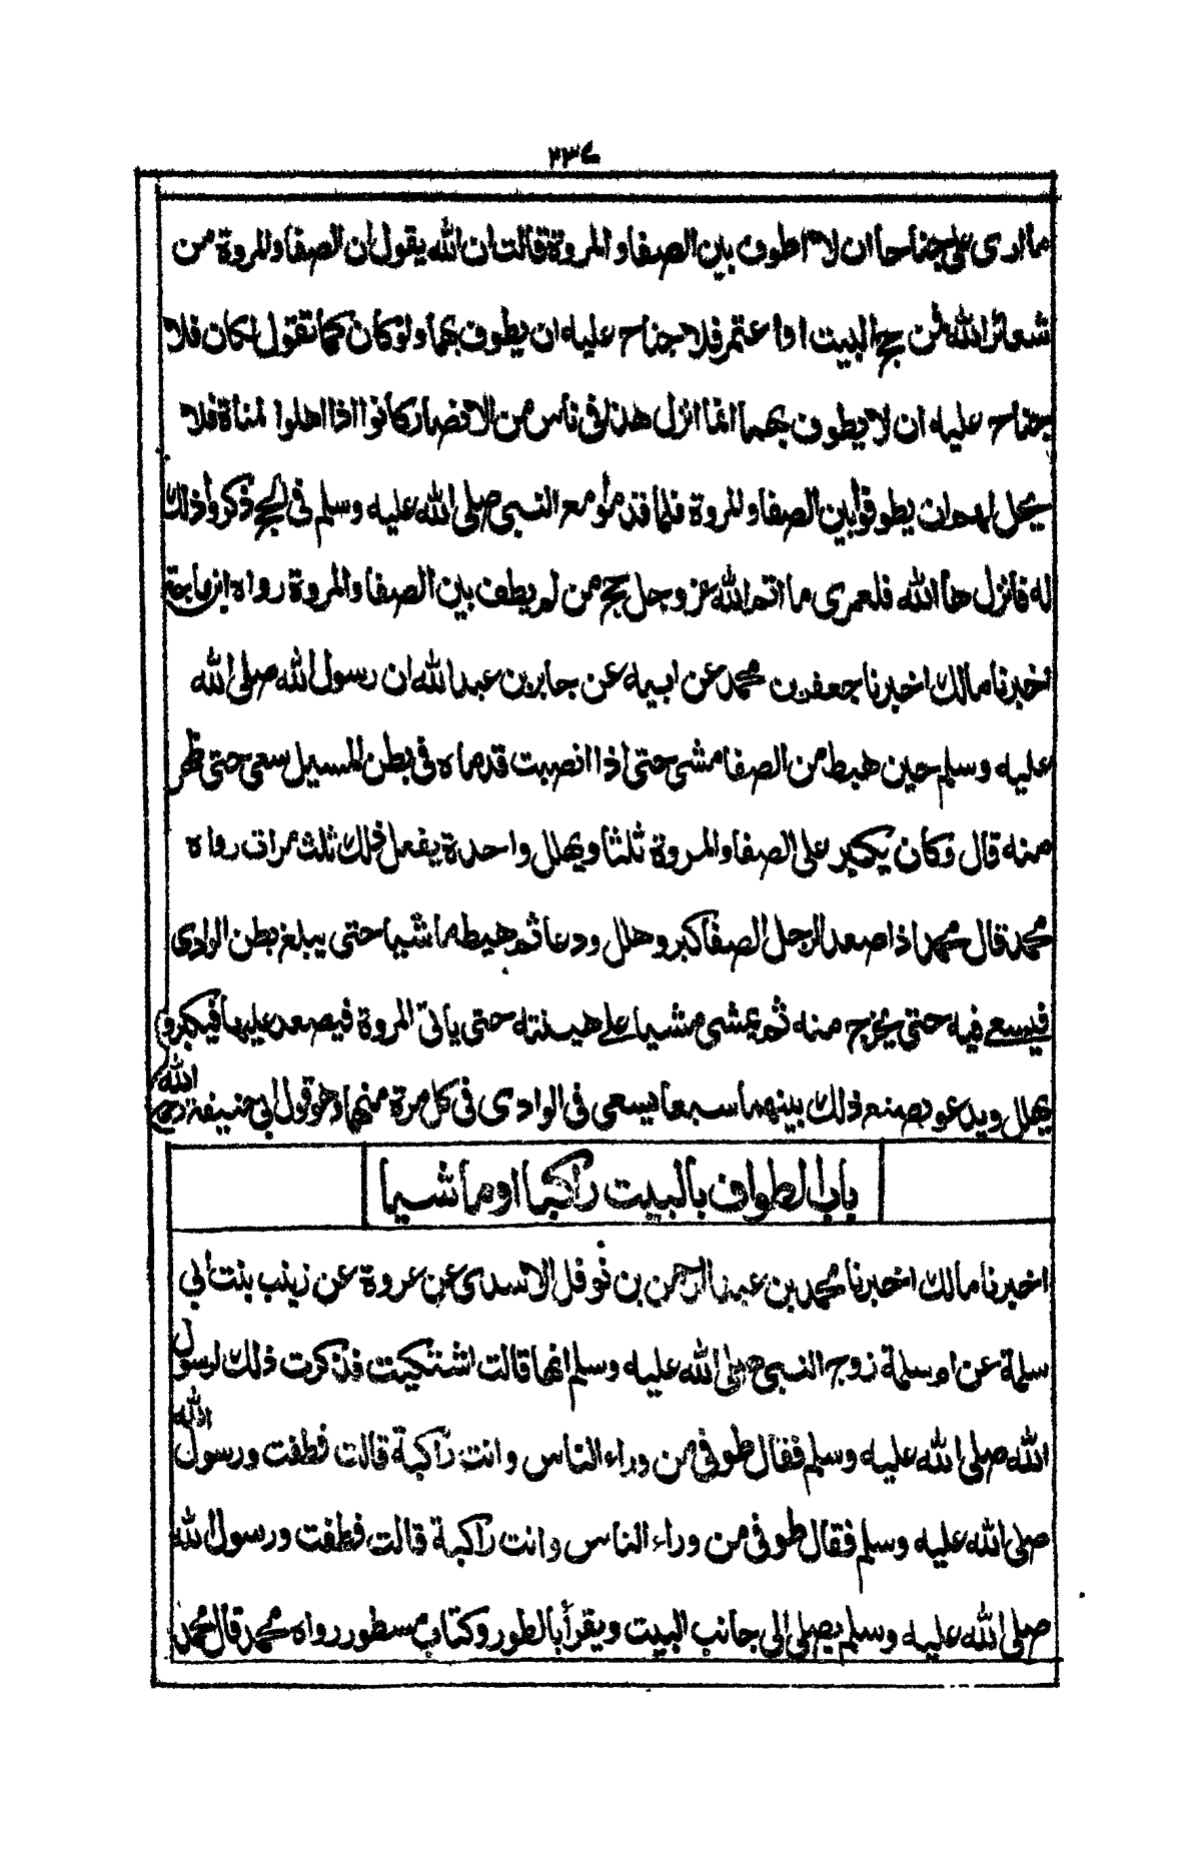 ٢٣٤
ما ارى على جناحا ان لا اطوف بين الصفا و المروة قالت ان الله يقول ان الصفا و المروة من
شعائر الله فمن حج البيت او اعتمر فلا جناح عليه ان يطوف بهما و لو كان كما تقول لكان فلا
جناح عليه ان لا يطوف بهما انما انزل هذا فى ناس من الانصار كانوا اذا اهلوا لمناة فلا
يحل لهم ان يطوفوا بين الصفا و المروة فلما قدموا مع النبي صلى الله عليه وسلم فى الحج ذكروا ذلك
له فانزل هذا الله فلعمرى ما اتم الله عز وجل حج من لم يطف بين الصفا و المروة رواه ابن ماجة
اخبرنا مالك اخبرنا جعفر بن محمد عن ابيه عن جابر بن عبد الله ان رسول الله صلى الله
عليه وسلم حين هبط من الصفا مشى حتى اذا انصبت قدماه فى بطن المسيل سعى حتى ظهر
منه قال وكان يكبر على الصفا و المروة ثلثا ويهلل واحدة يفعل ذلك ثلث مرات رواه
محمد قال محمد اذا صعد الرجل الصفا كبر وهلل ودعا ثم هبط ماشيا حتى يبلغ بطن الوادى
فيسعى فيه حتى يخرج منه ثم يمشى مشيا على هينته حتى ياتى المروة فيصعد عليها فيكبر و
يهلل ويدعو يصنع ذلك بينهما سبعا يسعى فى الوادى فى كل مرة منهما وهو قول ابي حنيفة رحمه الله
باب الطواف بالبيت راكبا او ماشيا
اخبرنا مالك اخبرنا محمد بن عبد الرحمن بن نوفل الاسدى عن عروة عن زينب بنت ابي
سلمة عن ام سلمة زوج النبي صلى الله عليه وسلم انها قالت اشتكيت فذكرت ذلك لرسول
الله صلى الله عليه وسلم فقال طوفى من وراء الناس وانت راكبة قالت فطفت ورسول الله
صلى الله عليه وسلم فقال طوفى من وراء الناس وانت راكبة قالت فطفت ورسول الله
صلى الله عليه وسلم يصلى الى جانب البيت ويقرأ بالطور وكتاب مسطور رواه محمد قال محمد